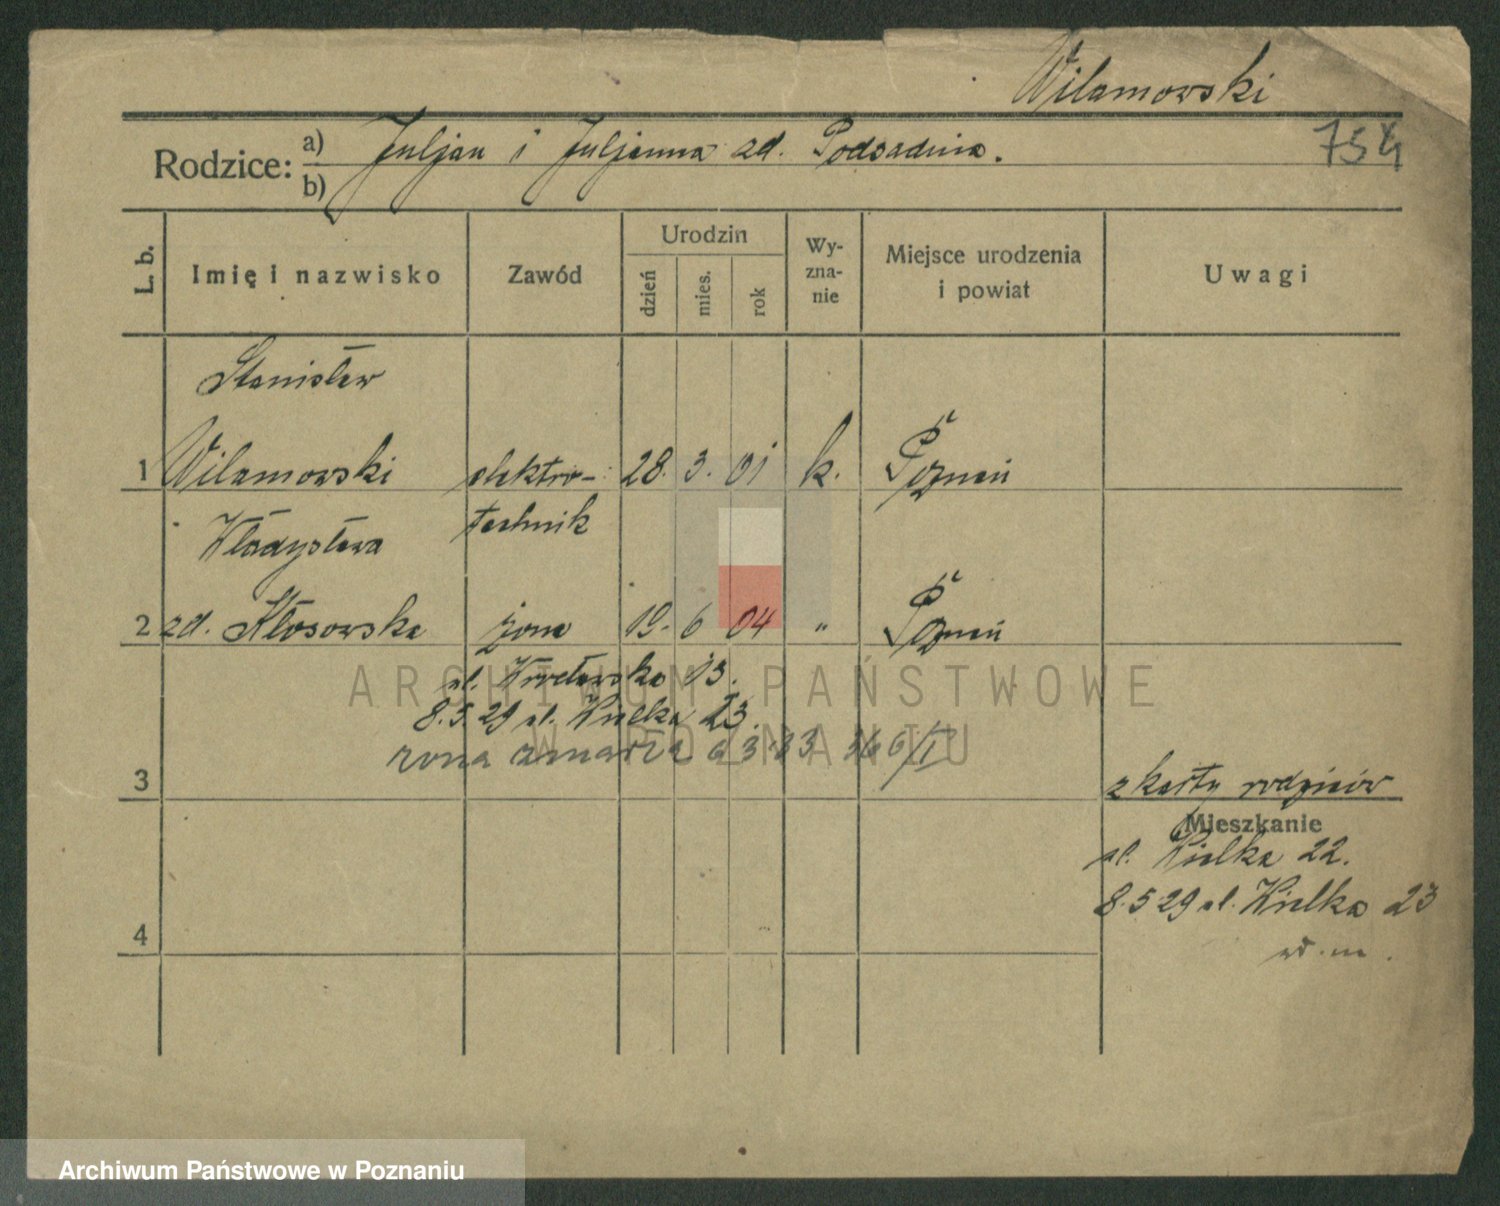 Wilamowski
754
Rodzice: a) b) Juljan i Juljanna zd. Podsadnia.
L. b. Imię i nazwisko Zawód Urodzin dzień mies. rok Wy-zna-nie Miejsce urodzenia i powiat Uwagi
Stanisław
1 Wilamowski elektro- 28. 3. 01 k. Poznań
technik
Władysława
2 zd. Kłosowska żona 19. 6 04 " Poznań
ul. 13.
8.5.29 ul. Wielka 23.
żona zmarła
3
z karty rodziców
Mieszkanie
ul. Wielka 22.
8.5 29 ul. Wielka 23
4
w.m.
ARCHIWUM PAŃSTWOWE
W POZNANIU
Archiwum Państwowe w Poznaniu